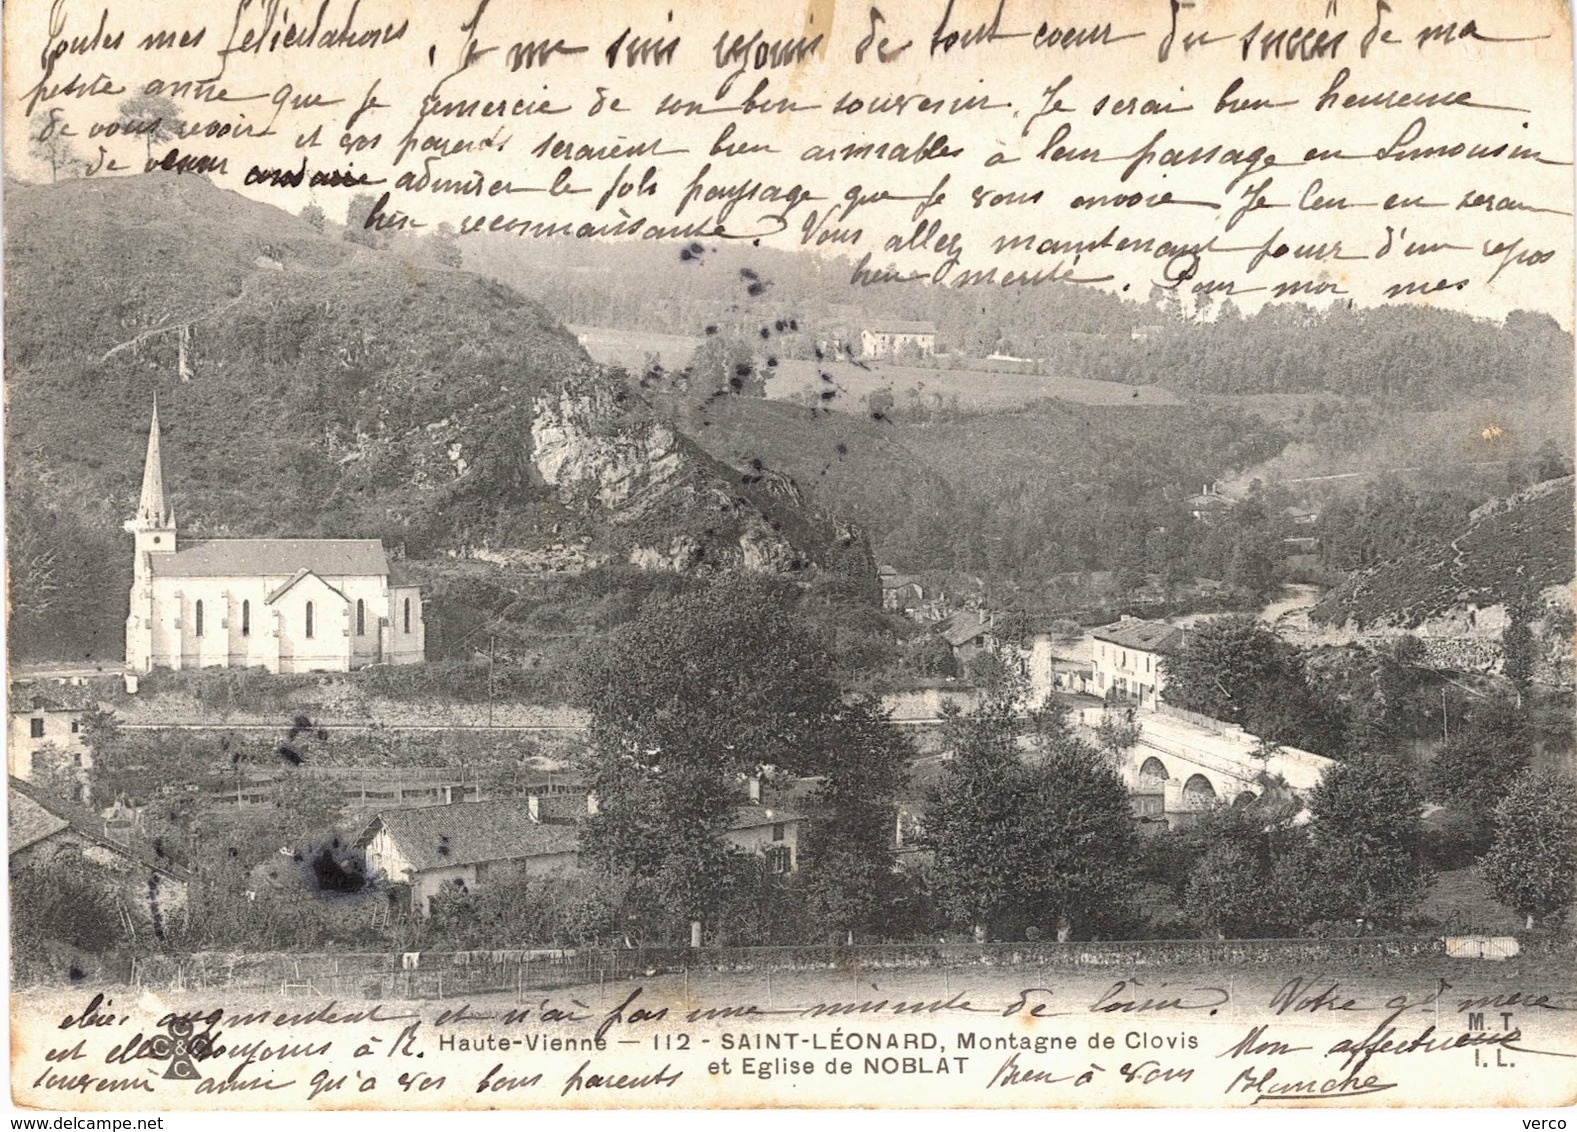 Toutes mes félicitations, Je me suis réjouis de tout coeur du succès de ma
petite amie que je remercie de son bon souvenir. Je serai bien heureuse
de vous revoir et vos parents seraient bien aimables à leur passage en Limousin
de venir admirer le joli paysage que je vous envoie. Je leur en serai
bien reconnaissante. Vous allez maintenant jouir d'un repos
bien mérité. Pour moi, mes
élèves augmentent et n'ai pas une minute de loisir. Votre gd mère
est elle toujours à R.
souvenir ainsi qu'à vos bons parents
Haute-Vienne — 112 - SAINT-LÉONARD, Montagne de Clovis
et Eglise de NOBLAT
Bien à vous
Mon affectueux
Blanche
C C & C C
M. T.
I. L.
verco